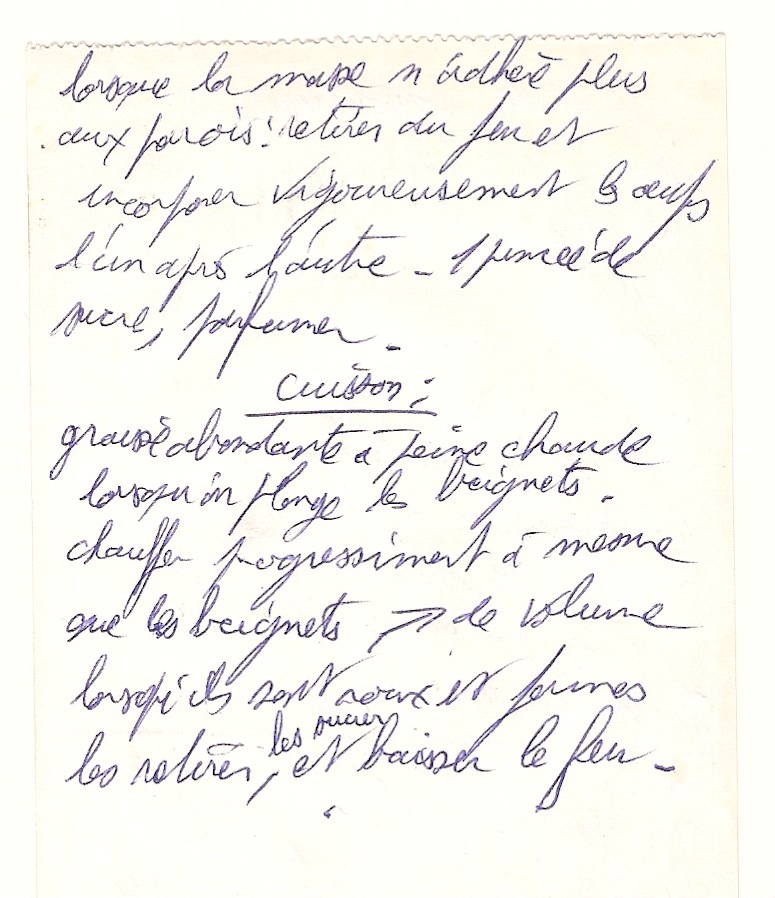 lorsque la masse n'adhère plus
aux parois : retirer du feu et
incorporer vigoureusement les œufs
l'un après l'autre - 1 pincée de
sucre, parfumer -
Cuisson :
graisse abondante à peine chaude
lorsqu'on plonge les beignets.
chauffer progressiment à mesure
que les beignets ↗ de volume
lorsqu'ils sont roux et fermes
les retirer, les sucrer et baisser le feu -